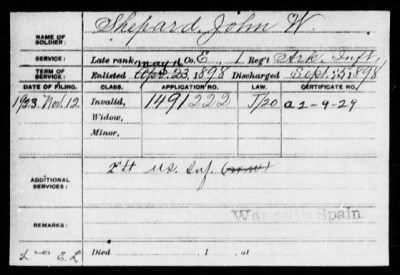 NAME OF SOLDIER: Shepard, John W.
SERVICE: Late rank Co. E, 1 Reg't Ark. Inft.
May 14
TERM OF SERVICE: Enlisted Apr. 23, 1898 Discharged Sept. 25 1898
DATE OF FILING. CLASS. APPLICATION NO. LAW. CERTIFICATE NO.
1923 Nov. 12 Invalid, 1491222 a 2-9-29
Widow,
Minor,
ADDITIONAL SERVICES: U.S. Inf.
REMARKS: War Spain
Died 1 , at